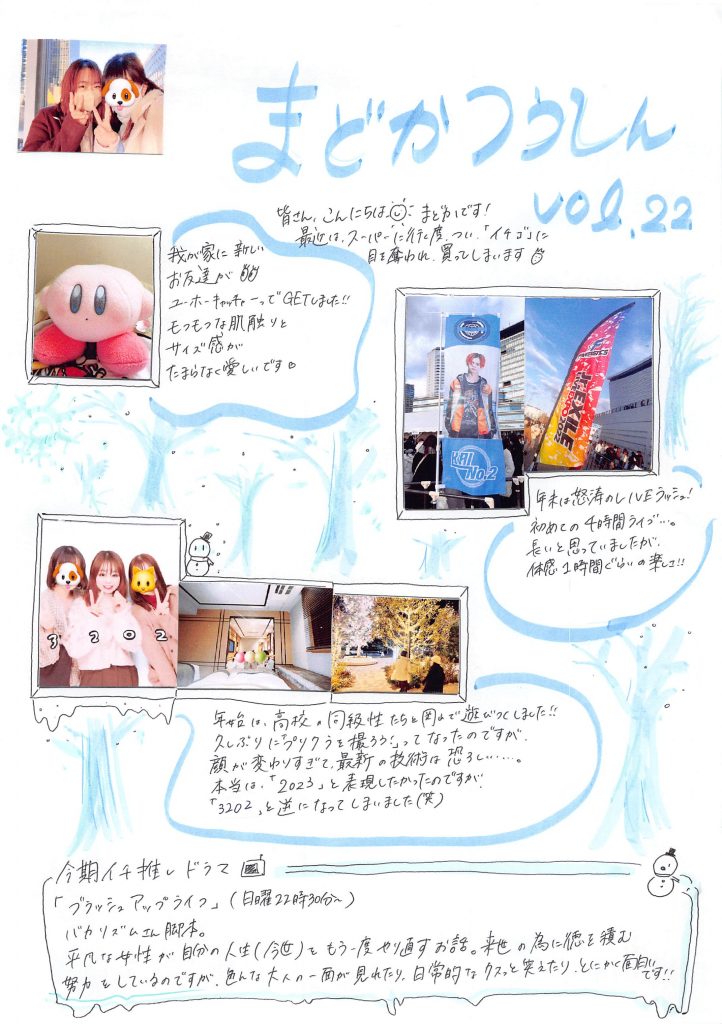 まどかつうしん
vol.22
皆さん、こんにちは まどかです!
最近は、スーパーに行く度、つい、「イチゴ」に
目を奪われ、買ってしまいます
我が家に新しい
お友達が
ユーホーキャッチャーってGETしました!!
もっちな肌触りと
サイズ感が
たまらなく愛しいです
KAI
No.2
EXILE
年末は怒涛のLIVEラッシュ!
初めての4時間ライブ…。
長いと思っていましたが、
体感1時間ぐらいの楽しさ!!
3 2 0 2
年始は、高校の同級性たちと岡山で遊びつくしました!!
久しぶりに「プリクラを撮ろう!」ってなったのですが、
顔が変わりすぎて、最新の技術は恐ろしい……。
本当は、「2023」と表現したかったのですが、
「3202」と逆になってしまいました(笑)
今期イチ推しドラマ
「ブラッシュアップライフ」(日曜22時30分〜)
バカリズムさん脚本。
平凡な女性が自分の人生(今世)をもう一度やり直すお話。来世の為に徳を積む
努力をしているのですが、色んな大人の一面が見れたり、日常的なクスッと笑えたり、とにかく面白い
です!!